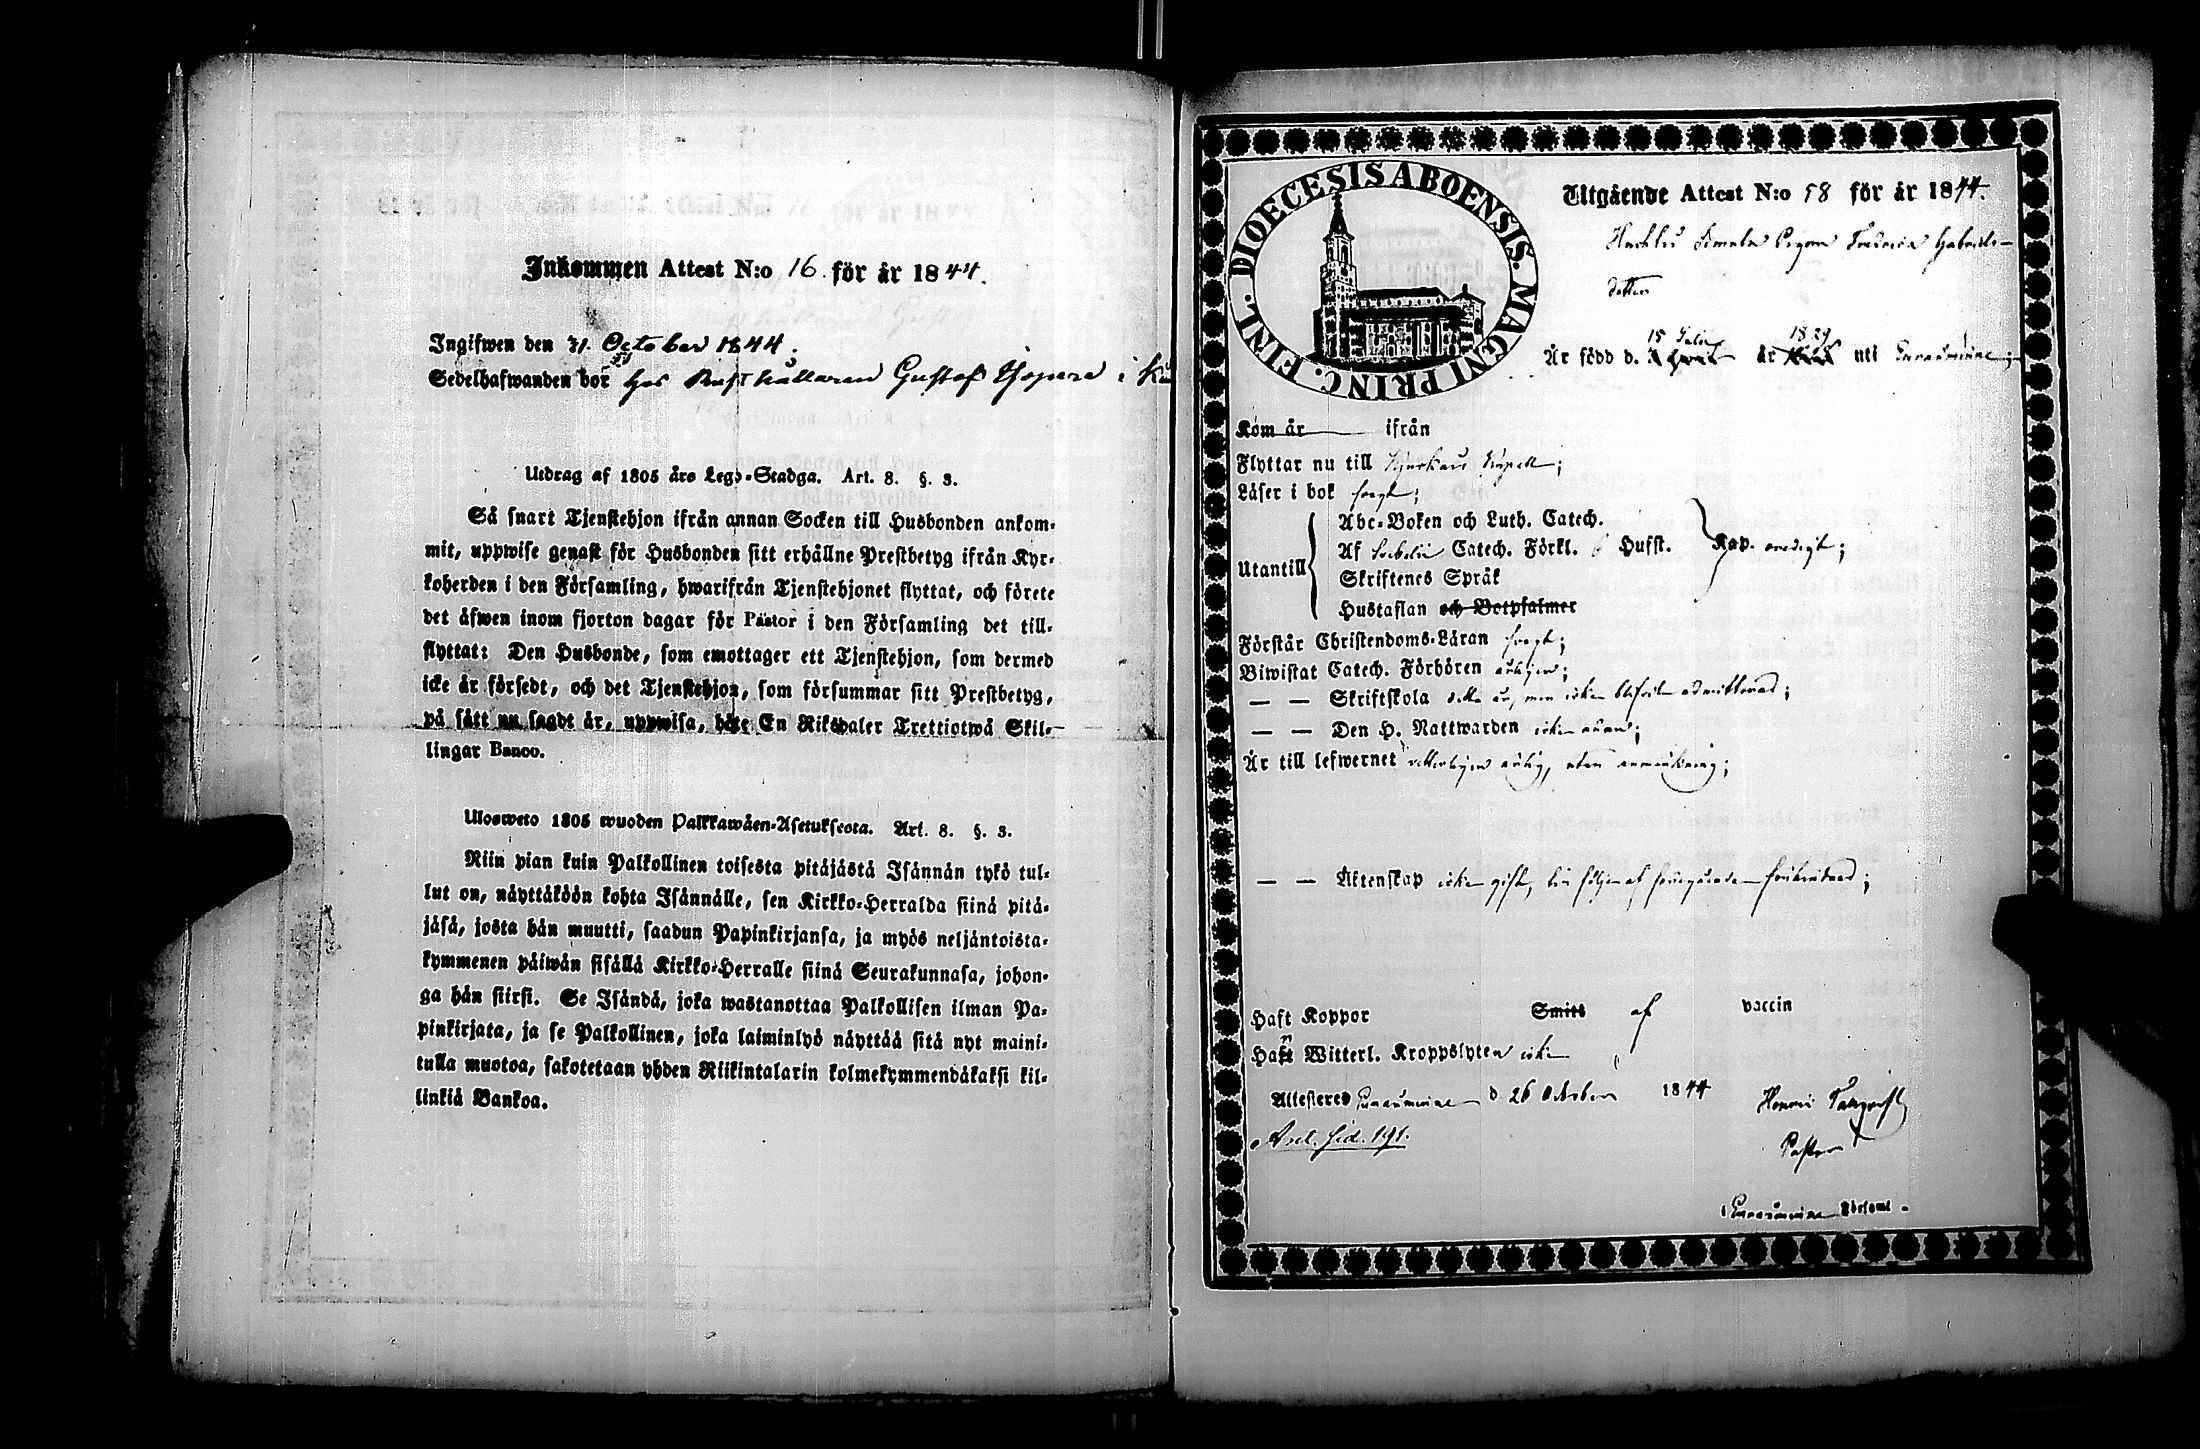 Inkommen Attest N:o 16. för år 1844.
Ingifwen den 31. October 1844.
Sedelhafwanden bor hos Rusthållaren Gustaf i
Utdrag af 1805 års Lego-Stadga. Art. 8. §. 3.
Så snart Tjenstehjon ifrån annan Socken till Husbonden ankom-
mit, uppwise genast för Husbonden sitt erhållne Prestbetyg ifrån Kyr-
koherden i den Församling, hwarifrån Tjenstehjonet flyttat, och förete
det äfwen inom fjorton dagar för Pastor i den Församling det till-
flyttat: Den Husbonde, som emottager ett Tjenstehjon, som dermed
icke är försedt, och det Tjenstehjon, som försummar sitt Prestbetyg,
på sätt nu sagdt är, uppwisa, böte En Riksdaler Trettiotwå Skil-
lingar Banco.
Ulosweto 1805 wuoden Palkkawäen-Asetuksesta. Art. 8. §. 3.
Niin pian kuin Palkollinen toisesta pitäjästä Isännän tykö tul-
lut on, näyttäköön kohta Isännälle, sen Kirkko-Herralda siinä pitä-
jäsä, josta hän muutti, saadun Papinkirjansa, ja myös neljäntoista-
kymmenen päiwän sisällä Kirkko-Herralle siinä Seurakunnasa, johon-
ga hän siirsi. Se Isändä, joka wastanottaa Palkollisen ilman Pa-
pinkirjata, ja se Palkollinen, joka laiminlyö näyttää sitä nyt maini-
tulla muotoa, sakotetaan yhden Riikintalarin kolmekymmendäkaksi kil-
linkiä Bankoa.
FINL. DIOECESIS ABOENSIS. MAGNI PRINC.
Utgående Attest N:o 58 för år 1844.
Pigan Fredrica Gabriels-
dotter
15 Julii 1829
Är född d. år uti Euraåminne;
Kom år ifrån
Flyttar nu till Capell;
Läser i bok svagt;
Utantill
Abc-Boken och Luth. Catech.
Af Catech. Förkl. Hufst. Kap. oredigt;
Skriftenes Språk
Hustaflan och Botpsalmer
Förstår Christendoms-Läran svagt;
Biwistat Catech. Förhören årligen;
— — Skriftskola detta år, men icke blifvit admitterad;
— — Den H. Nattwarden icke ännu;
Är till lefwernet ärlig, utan anmärkning;
— — Äktenskap icke gift, till följe af föregående förhindrad;
Haft Koppor Smitt af vaccin
Haft Witterl. Kroppslyten icke
Attesterer Euraåminne d. 26 October 1844 Henric
Pastor
sid. 191.
i Euraåminne Församl.